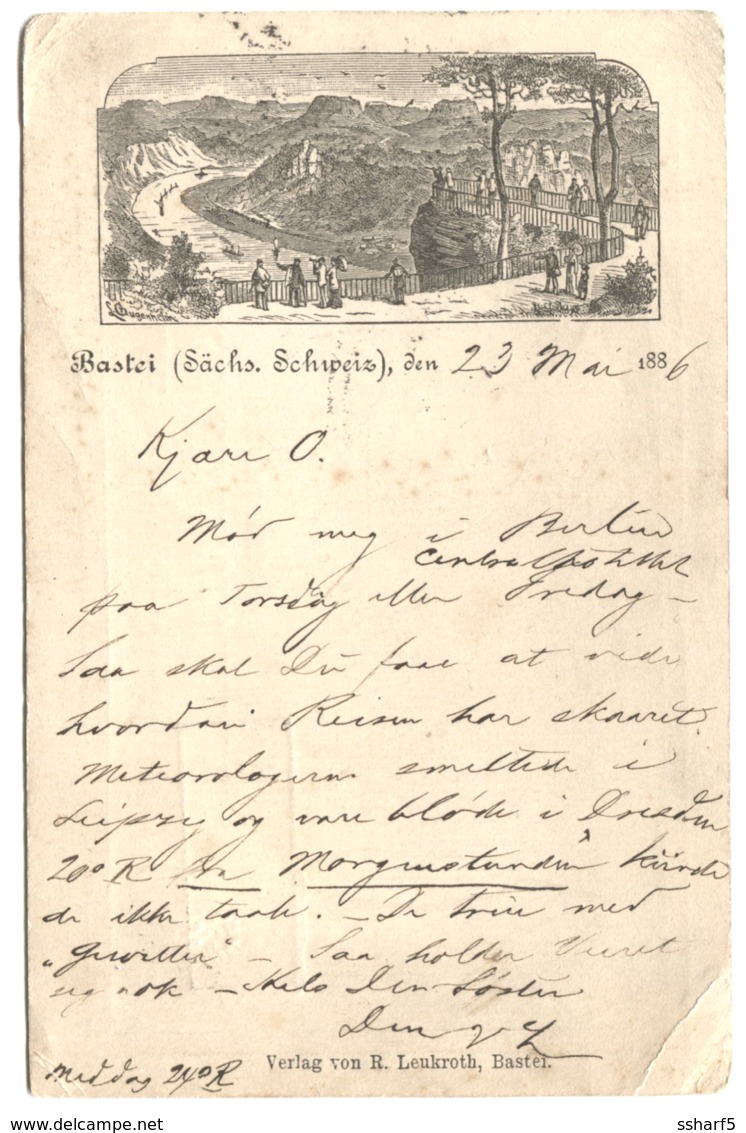 Bastei (Sächs. Schweiz), den 23 Mai 1886
Kjære O.
Mød meg i Berlin
Central
paa Torsdag eller Fredag –
Saa skal Du faae at vide
hvordan Reisen har skaaret.
Meteorologerne smeltede i
Leipzig og vare bløde i Dresden
20° R fra Morgenstunden kunde
de ikke taale. – De true med
"Gewitter" – Saa holder Veiret
sig nok – Hils Din Søster
Din
Middag 24° R
Verlag von R. Leukroth, Bastei.
ssharf5